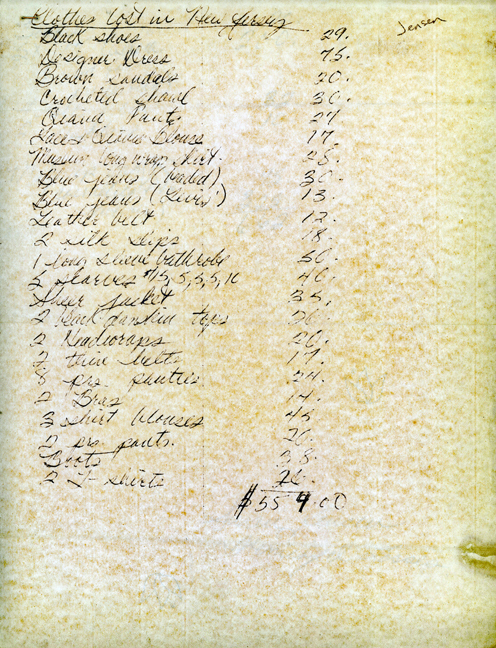 Clothes lost in New Jersey
Jensen
Black shoes 29.
Designer Dress 75.
Brown sandals 20.
Crocheted shawl 30.
Pants 27
Blouse 17.
long wrap skirt. 25.
Blue jeans (beaded) 30.
Blue jeans (Levis') 13.
Leather belt 12.
2 silk slips 18.
1 long sleeve bathrobe 50.
5 scarves $15, 5, 5, 5, 10 40.
jacket 35.
2 tops
2 Headwraps 20.
2 thin belts 17.
8 prs panties 24.
2 Bras 14.
3 shirt blouses 45
2 prs. pants. 20.
Boots 38.
2 T-shirts
$554.00